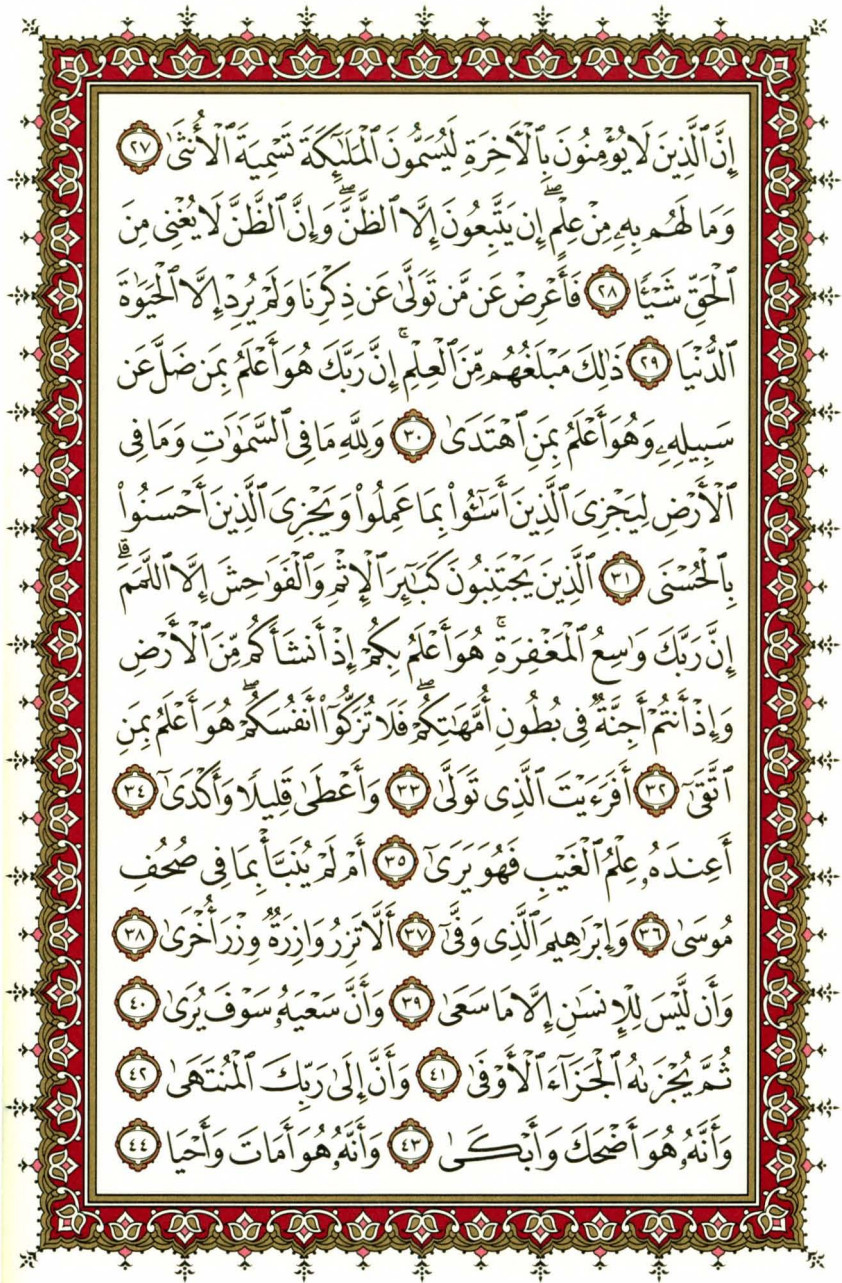 إِنَّ ٱلَّذِينَ لَا يُؤْمِنُونَ بِٱلْأَخِرَةِ لَيُسَمُّونَ ٱلْمَلَٰٓئِكَةَ تَسْمِيَةَ ٱلْأُنثَىٰ ٢٧
وَمَا لَهُم بِهِۦ مِنْ عِلْمٍۖ إِن يَتَّبِعُونَ إِلَّا ٱلظَّنَّۖ وَإِنَّ ٱلظَّنَّ لَا يُغْنِى مِنَ
ٱلْحَقِّ شَيْـًٔا ٢٨ فَأَعْرِضْ عَن مَّن تَوَلَّىٰ عَن ذِكْرِنَا وَلَمْ يُرِدْ إِلَّا ٱلْحَيَوٰةَ
ٱلدُّنْيَا ٢٩ ذَٰلِكَ مَبْلَغُهُم مِّنَ ٱلْعِلْمِۚ إِنَّ رَبَّكَ هُوَ أَعْلَمُ بِمَن ضَلَّ عَن
سَبِيلِهِۦ وَهُوَ أَعْلَمُ بِمَنِ ٱهْتَدَىٰ ٣٠ وَلِلَّهِ مَا فِى ٱلسَّمَٰوَٰتِ وَمَا فِى
ٱلْأَرْضِ لِيَجْزِىَ ٱلَّذِينَ أَسَٰٓـُٔوا۟ بِمَا عَمِلُوا۟ وَيَجْزِىَ ٱلَّذِينَ أَحْسَنُوا۟
بِٱلْحُسْنَى ٣١ ٱلَّذِينَ يَجْتَنِبُونَ كَبَٰٓئِرَ ٱلْإِثْمِ وَٱلْفَوَٰحِشَ إِلَّا ٱللَّمَمَۗ
إِنَّ رَبَّكَ وَٰسِعُ ٱلْمَغْفِرَةِۚ هُوَ أَعْلَمُ بِكُمْ إِذْ أَنشَأَكُم مِّنَ ٱلْأَرْضِ
وَإِذْ أَنتُمْ أَجِنَّةٌ فِى بُطُونِ أُمَّهَٰتِكُمْۖ فَلَا تُزَكُّوٓا۟ أَنفُسَكُمْۖ هُوَ أَعْلَمُ بِمَنِ
ٱتَّقَىٰٓ ٣٢ أَفَرَءَيْتَ ٱلَّذِى تَوَلَّىٰ ٣٣ وَأَعْطَىٰ قَلِيلًا وَأَكْدَىٰٓ ٣٤
أَعِندَهُۥ عِلْمُ ٱلْغَيْبِ فَهُوَ يَرَىٰٓ ٣٥ أَمْ لَمْ يُنَبَّأْ بِمَا فِى صُحُفِ
مُوسَىٰ ٣٦ وَإِبْرَٰهِيمَ ٱلَّذِى وَفَّىٰٓ ٣٧ أَلَّا تَزِرُ وَازِرَةٌ وِزْرَ أُخْرَىٰ ٣٨
وَأَن لَّيْسَ لِلْإِنسَٰنِ إِلَّا مَا سَعَىٰ ٣٩ وَأَنَّ سَعْيَهُۥ سَوْفَ يُرَىٰ ٤٠
ثُمَّ يُجْزَىٰهُ ٱلْجَزَآءَ ٱلْأَوْفَىٰ ٤١ وَأَنَّ إِلَىٰ رَبِّكَ ٱلْمُنتَهَىٰ ٤٢
وَأَنَّهُۥ هُوَ أَضْحَكَ وَأَبْكَىٰ ٤٣ وَأَنَّهُۥ هُوَ أَمَاتَ وَأَحْيَا ٤٤